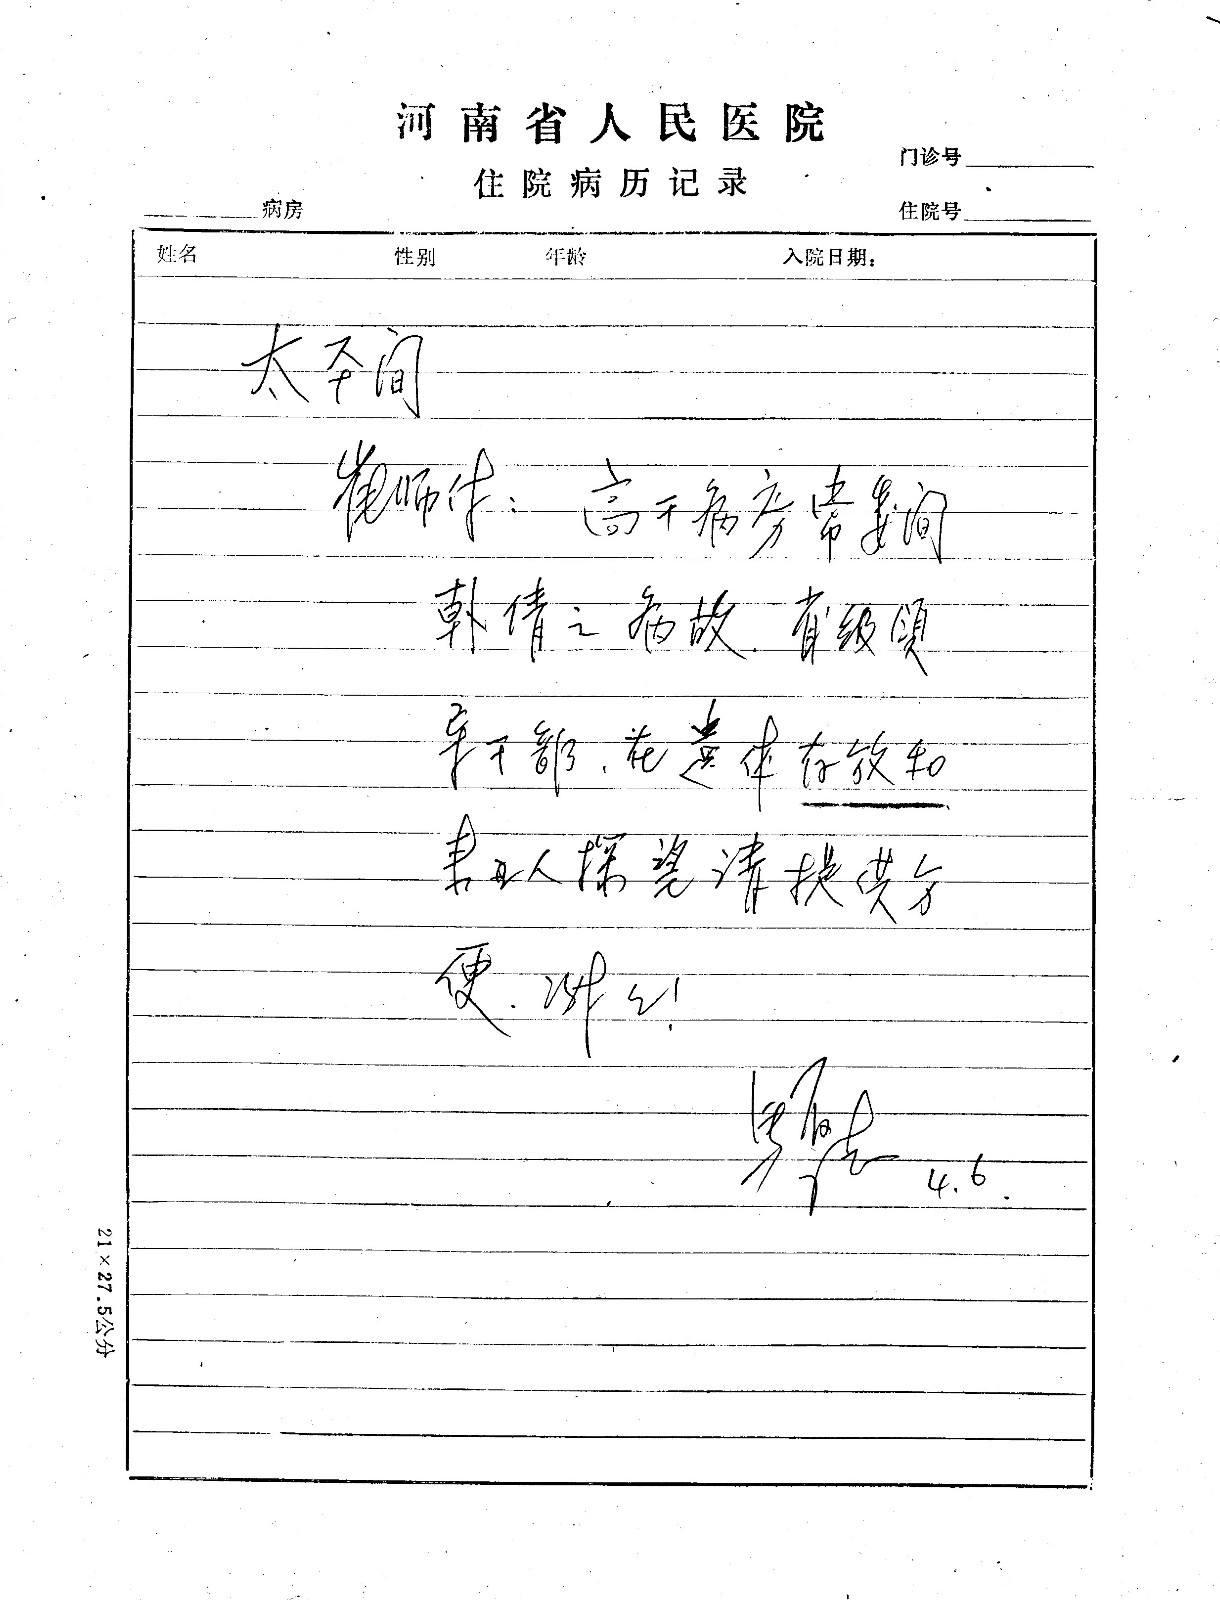 河南省人民医院
门诊号
住院病历记录
病房
住院号
姓名 性别 年龄 入院日期：
太平间
崔师付： 高干病房常委间
韩倩之病故.省级领
导干部.在遗体存放和
来人探望请提供方
便.谢之!
4.6.
21×27.5公分